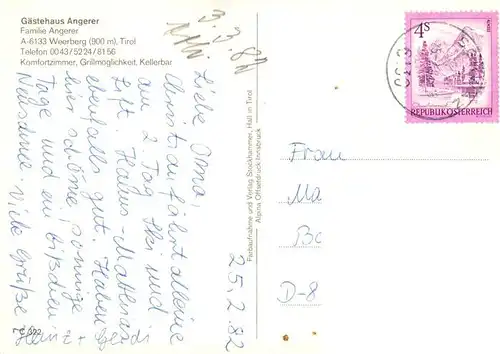 Gästehaus Angerer
Familie Angerer
A-6133 Weerberg (900 m), Tirol
Telefon 0043/5224/8156
Komfortzimmer, Grillmöglichkeit, Kellerbar
3.3.82
Liebe Oma,
fährt alleine
am 2. Tag Ski und
Lift. Hanns-Mathias
ebenfalls gut. Haben
hier schöne, sonnige
Tage und ein bißchen
Neuschnee. Viele Grüße
Heinz + Gerdi
25.2.82
Farbaufnahme und Verlag Stockhammer, Hall in Tirol
Alpina Offsetdruck Innsbruck
4S
REPUBLIK ÖSTERREICH
6133
Frau
Ma
Bc
D-8